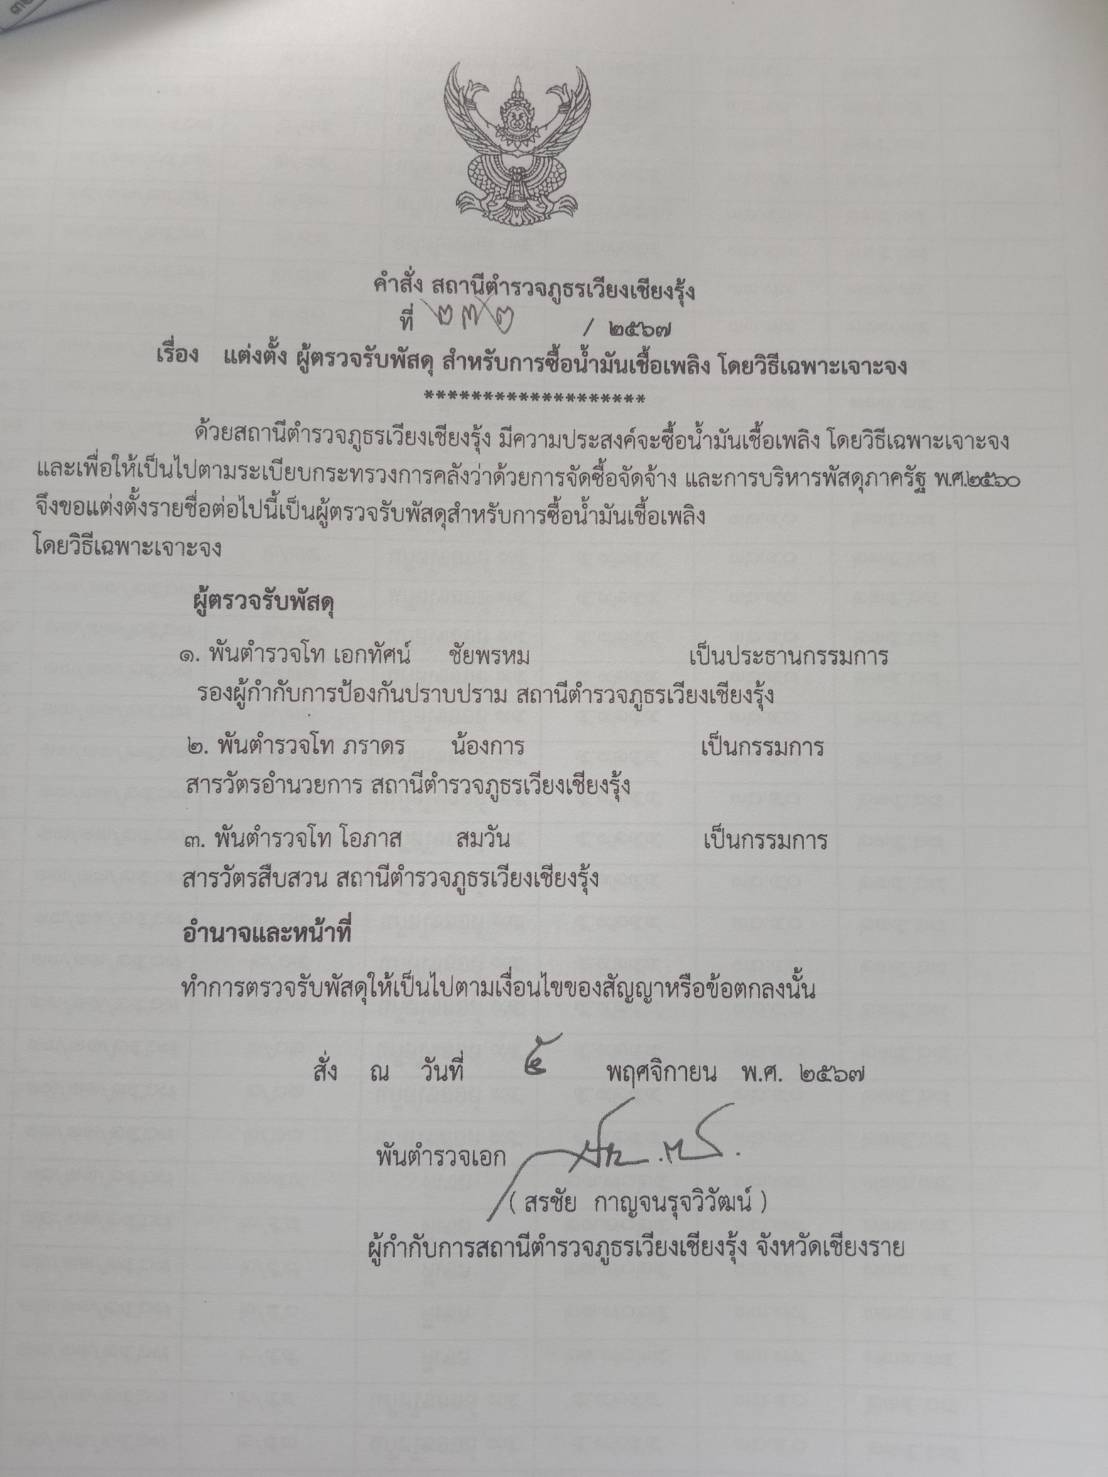 คำสั่ง สถานีตำรวจภูธรเวียงเชียงรุ้ง
ที่ ๒๗๒ / ๒๕๖๗
เรื่อง แต่งตั้ง ผู้ตรวจรับพัสดุ สำหรับการซื้อน้ำมันเชื้อเพลิง โดยวิธีเฉพาะเจาะจง
*******************
ด้วยสถานีตำรวจภูธรเวียงเชียงรุ้ง มีความประสงค์จะซื้อน้ำมันเชื้อเพลิง โดยวิธีเฉพาะเจาะจง
และเพื่อให้เป็นไปตามระเบียบกระทรวงการคลังว่าด้วยการจัดซื้อจัดจ้าง และการบริหารพัสดุภาครัฐ พ.ศ.๒๕๖๐
จึงขอแต่งตั้งรายชื่อต่อไปนี้เป็นผู้ตรวจรับพัสดุสำหรับการซื้อน้ำมันเชื้อเพลิง
โดยวิธีเฉพาะเจาะจง
ผู้ตรวจรับพัสดุ
๑. พันตำรวจโท เอกทัศน์ ชัยพรหม เป็นประธานกรรมการ
รองผู้กำกับการป้องกันปราบปราม สถานีตำรวจภูธรเวียงเชียงรุ้ง
๒. พันตำรวจโท ภราดร น้องการ เป็นกรรมการ
สารวัตรอำนวยการ สถานีตำรวจภูธรเวียงเชียงรุ้ง
๓. พันตำรวจโท โอภาส สมวัน เป็นกรรมการ
สารวัตรสืบสวน สถานีตำรวจภูธรเวียงเชียงรุ้ง
อำนาจและหน้าที่
ทำการตรวจรับพัสดุให้เป็นไปตามเงื่อนไขของสัญญาหรือข้อตกลงนั้น
สั่ง ณ วันที่ ๕ พฤศจิกายน พ.ศ. ๒๕๖๗
พันตำรวจเอก
( สรชัย กาญจนรุจวิวัฒน์ )
ผู้กำกับการสถานีตำรวจภูธรเวียงเชียงรุ้ง จังหวัดเชียงราย